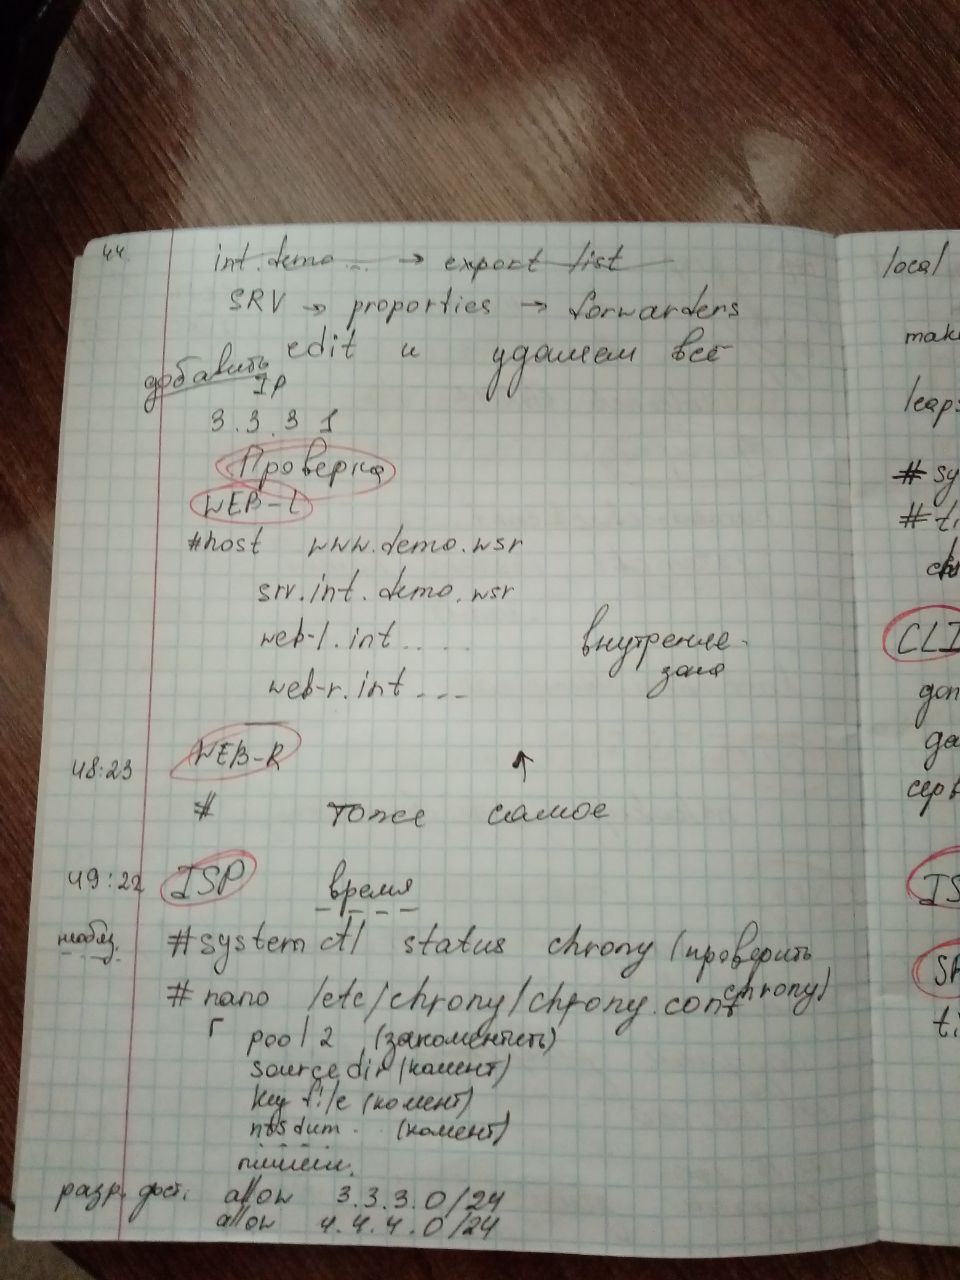 44
int.demo... → export list
SRV → proporties → forwarders
edit и удаляем всё
добавить
IP
3.3.3 1
Проверка
WEB-L
#host www.demo.wsr
srv.int.demo.wsr
web-l.int....
web-r.int...
внутрение
зоня
48:23 WEB-R
↑
# тоже самое
49:22 ISP время
необяз. #systemctl status chrony (проверить
chrony)
# nano /etc/chrony/chrony.conf
pool 2 (закоментить)
sourcedir (комент)
key file (комент)
ntsdum. (комент)
пишем.
разр. дост. allow 3.3.3.0/24
allow 4.4.4.0/24
local
make
leaps
# sy
# ti
CLI
доп
серв
IS
ti